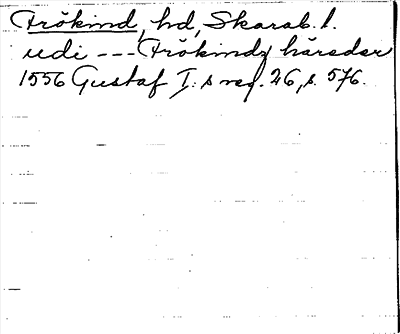 Frökind, hd, Skarab. l.
udi --- Frökindz häreder
1556 Gustaf I:s reg. 26, s. 576.